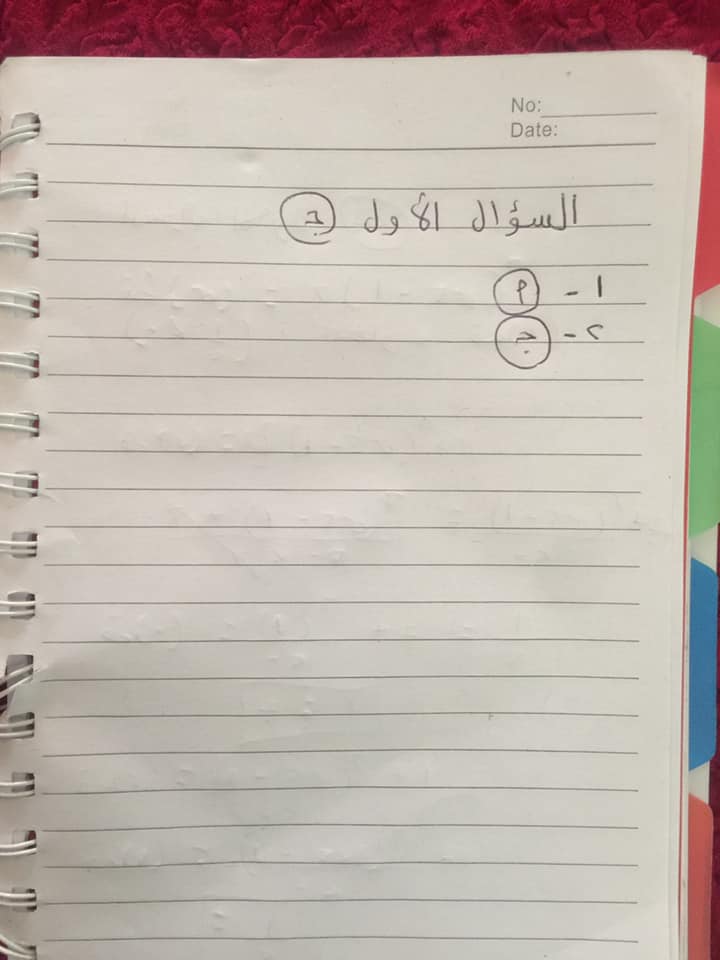 No:
Date:
السؤال الأول ج
١ - م
٢ - ج